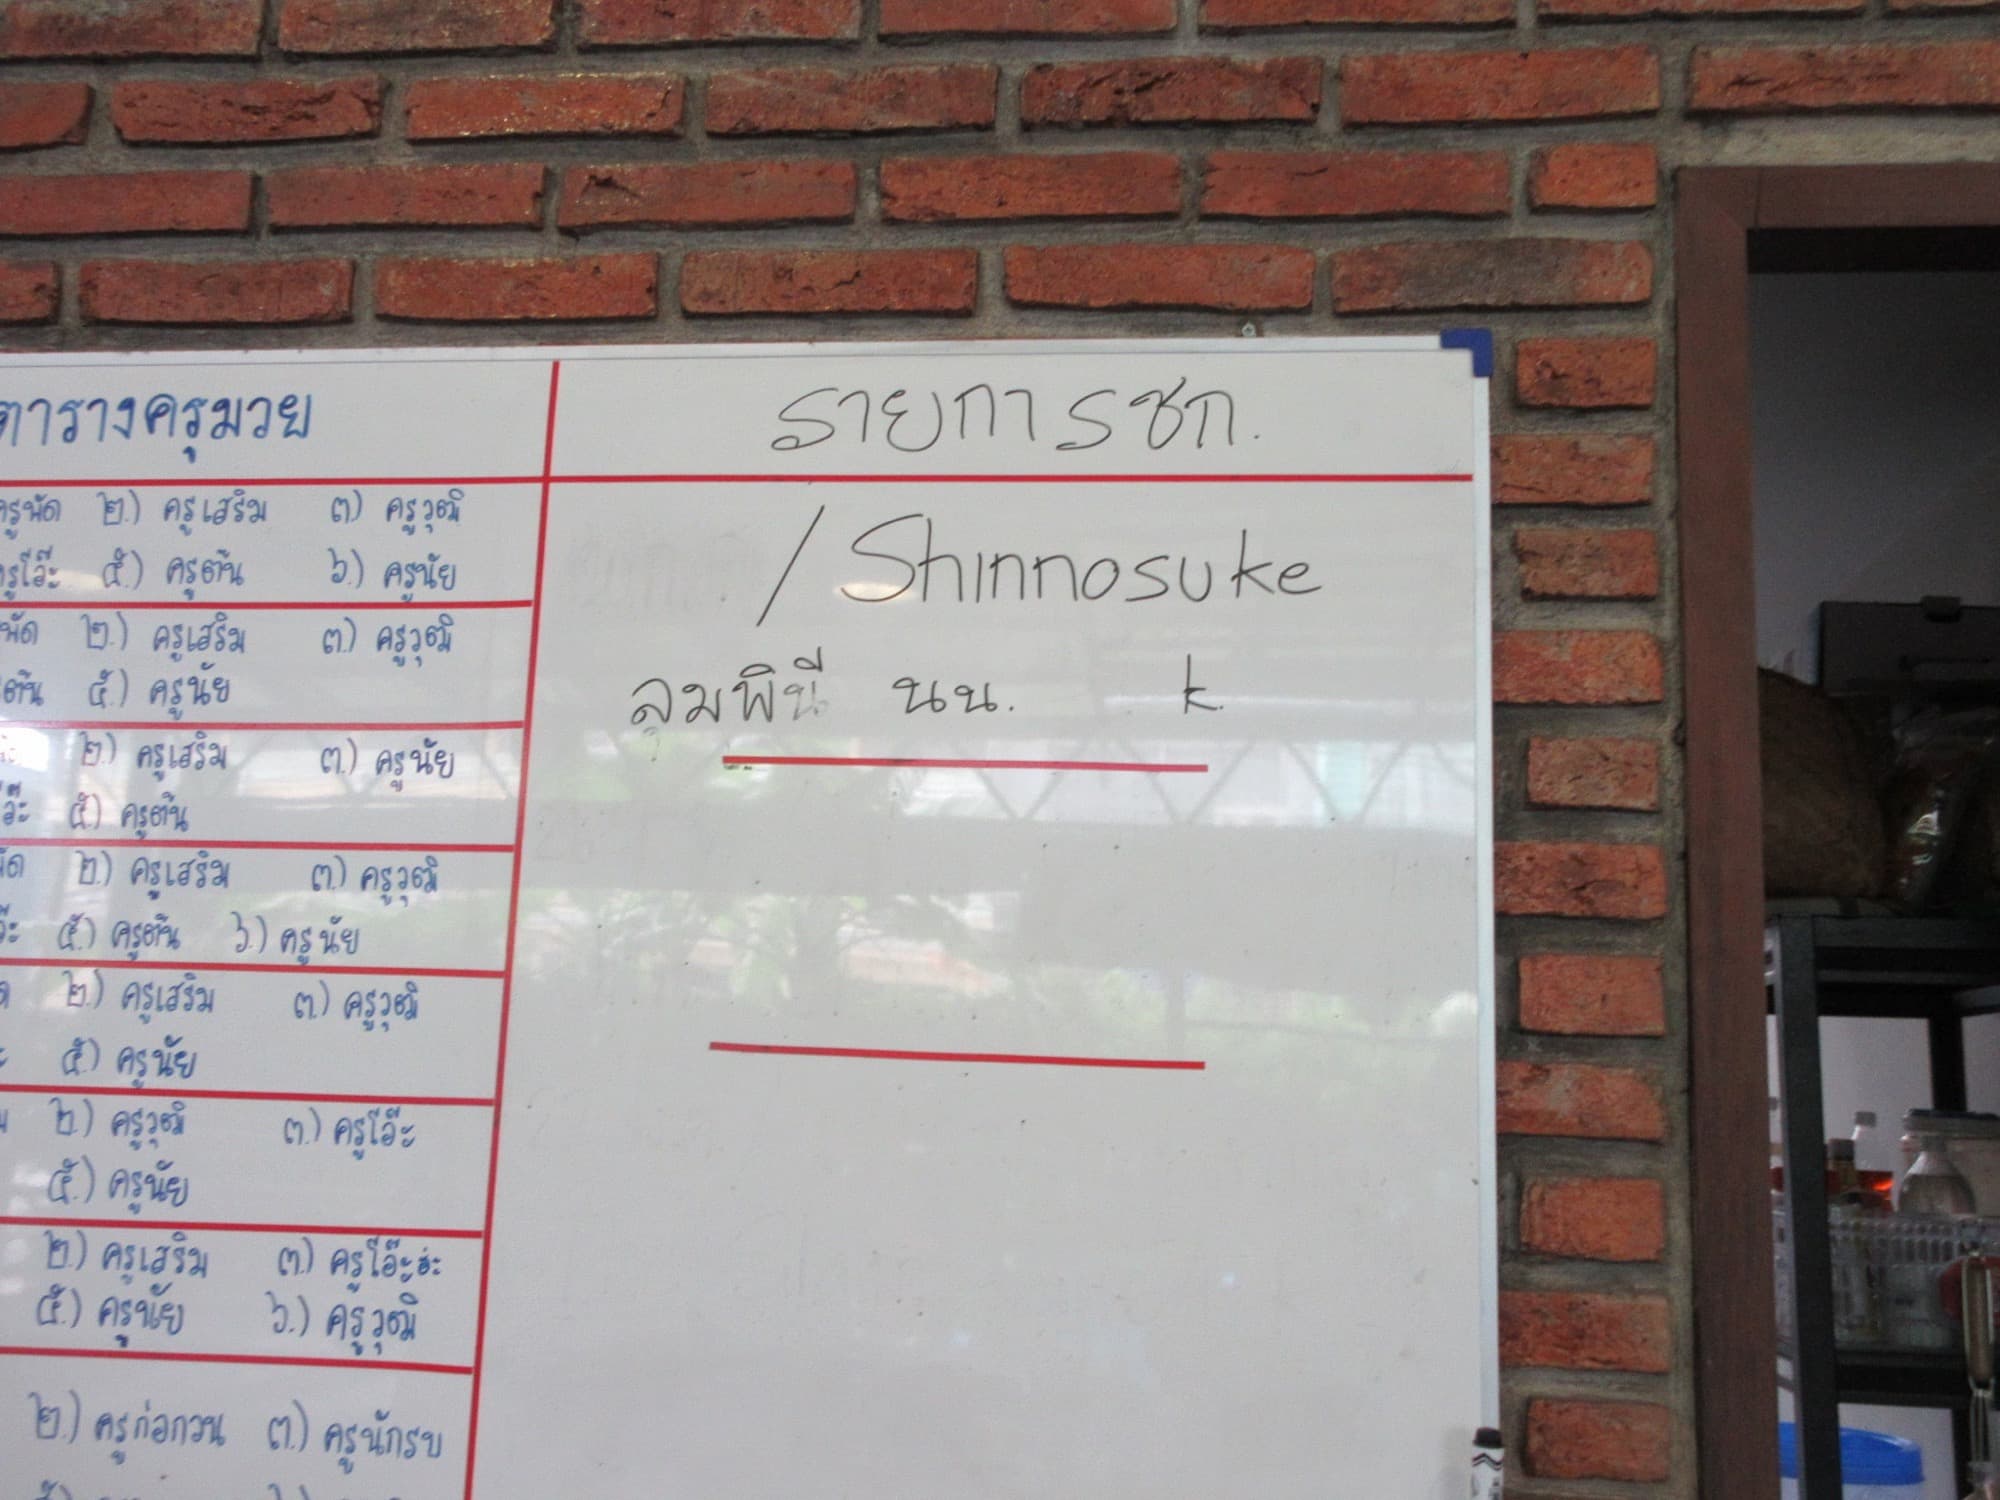 ตารางครูมวย
รายการชก.
ครูพัด ๒.) ครูเสริม ๓) ครูวุฒิ
ครูโอ๊ะ ๕.) ครูต้น ๖.) ครูนัย
พัด ๒.) ครูเสริม ๓.) ครูวุฒิ
ต้น ๕.) ครูนัย
๒.) ครูเสริม ๓.) ครูนัย
โอ๊ะ ๕) ครูต้น
พัด ๒.) ครูเสริม ๓.) ครูวุฒิ
๕.) ครูต้น ๖.) ครูนัย
๒.) ครูเสริม ๓.) ครูวุฒิ
๕.) ครูนัย
๒.) ครูวุฒิ ๓.) ครูโอ๊ะ
๕.) ครูนัย
๒.) ครูเสริม ๓.) ครูโอ๊ะ
๕.) ครูนัย ๖.) ครูวุฒิ
๒.) ครูก่อกวน ๓.) ครูนักรบ
/ Shinnosuke
ลุมพินี นน. k.